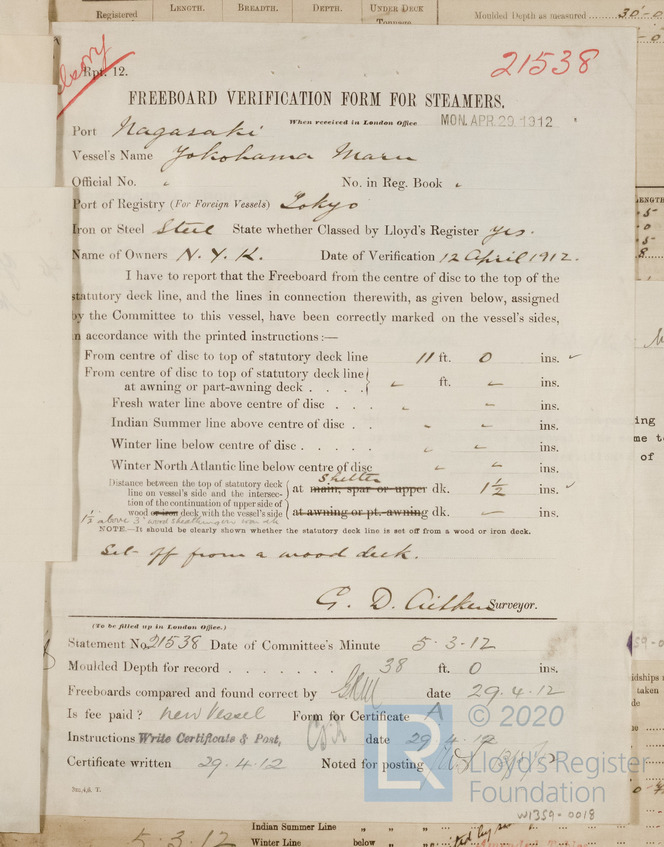 Registered LENGTH. BREADTH. DEPTH. UNDER DECK Tonnage Moulded Depth as measured ....... 30-0
Rpt. 12.
21538
FREEBOARD VERIFICATION FORM FOR STEAMERS.
When received in London Office MON. APR. 29. 1912
Port Nagasaki
Vessel's Name Yokohama Maru
Official No. „ No. in Reg. Book „
Port of Registry (For Foreign Vessels) Tokyo
Iron or Steel Steel State whether Classed by Lloyd's Register yes.
Name of Owners N. Y. K. Date of Verification 12 April 1912.
I have to report that the Freeboard from the centre of disc to the top of the
statutory deck line, and the lines in connection therewith, as given below, assigned
by the Committee to this vessel, have been correctly marked on the vessel's sides,
n accordance with the printed instructions :—
From centre of disc to top of statutory deck line 11 ft. 0 ins.
From centre of disc to top of statutory deck line
at awning or part-awning deck . . . . „ ft. „ ins.
Fresh water line above centre of disc . . . „ „ ins.
Indian Summer line above centre of disc . . „ „ ins.
Winter line below centre of disc . . . . . „ „ ins.
Winter North Atlantic line below centre of disc „ „ ins.
Distance between the top of statutory deck
line on vessel's side and the intersec-
tion of the continuation of upper side of
wood or iron deck with the vessel's side
Shelter
at main, spar or upper dk. 1½ ins.
at awning or pt.-awning dk. — ins.
1½ above 3" wood sheathing on iron dk
NOTE.—It should be clearly shown whether the statutory deck line is set off from a wood or iron deck.
Set off from a wood deck.
G. D. Aitken Surveyor.
(To be filled up in London Office.)
Statement No. 21538 Date of Committee's Minute 5·3·12
Moulded Depth for record . . . . . . . 38 ft. 0 ins.
Freeboards compared and found correct by date 29.4.12
Is fee paid? New Vessel Form for Certificate A
Instructions Write Certificate & Post, date 29 4.12
Certificate written 29·4·12 Noted for posting
© 2020
LR
Lloyd's Register
Foundation
W1359-0018
5·3·12
Indian Summer Line „ „ „
Winter Line below „ „